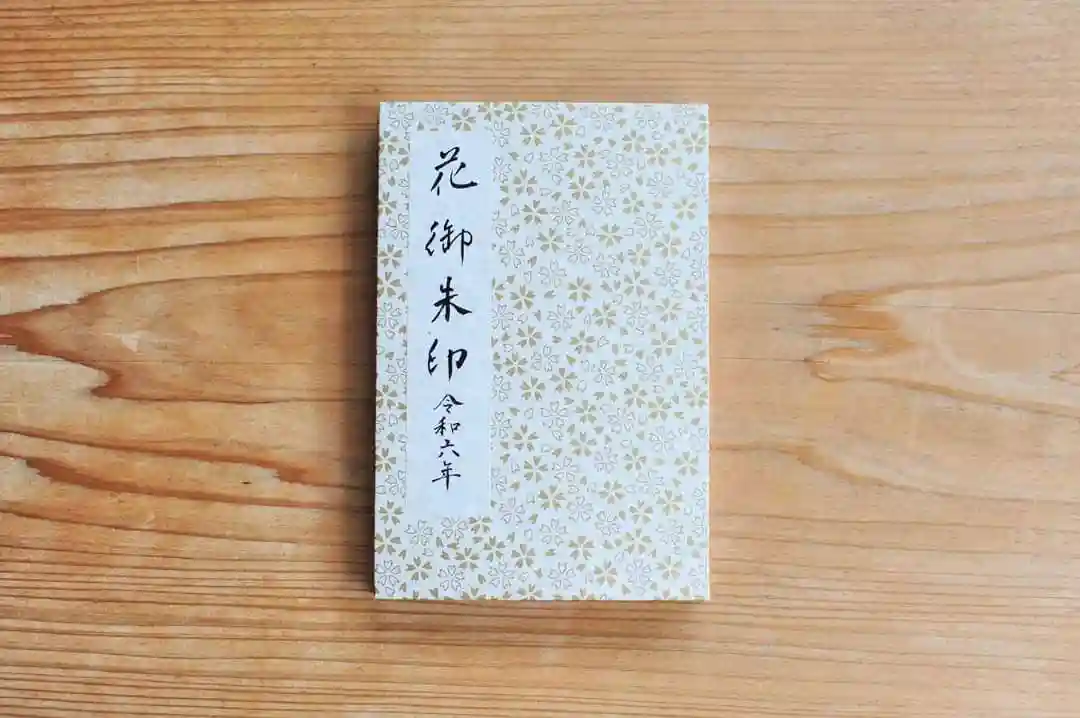 花御朱印 令和六年